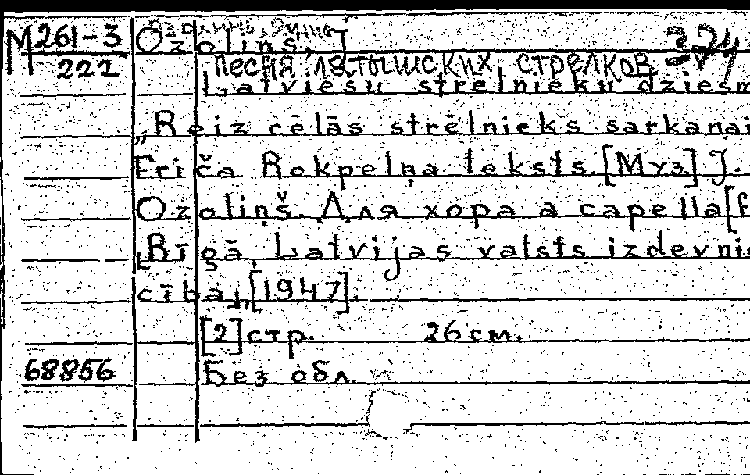 М 261-3
222
Озолинь, Я
Ozoliņš, J
324
Песня латышских стрелков
Latviešu strēlnieku dziesm
„Reiz cēlās strēlnieks sarkanai
Ēriča Rokpelņa teksts. [Муз] J.
Ozoliņš. Для хора a capella [Б
[Rīgā, Latvijas valsts izdevnie
cība], [1947].
[2] стр. 26 см.
68856
Без обл.